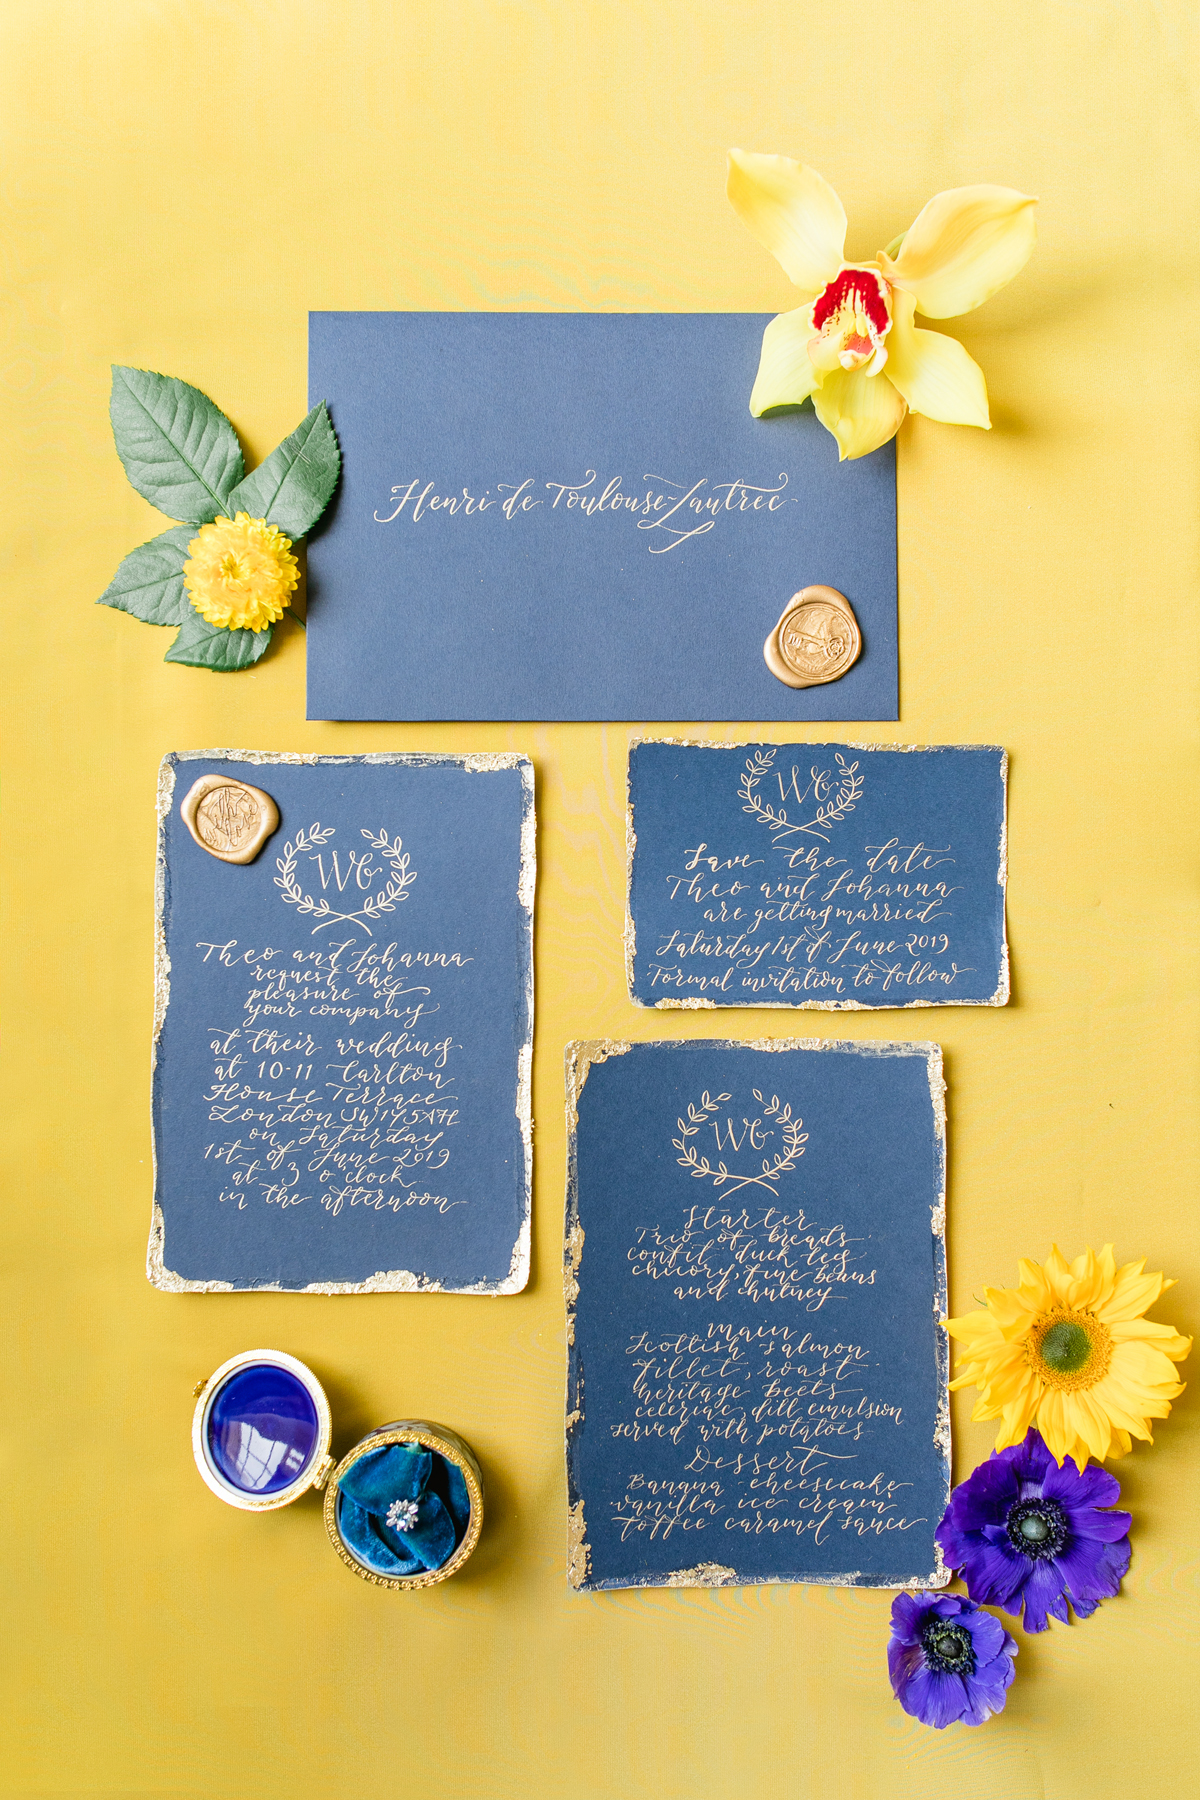 Henri de Toulouse-Lautrec
Wb
Theo and Johanna
request the
pleasure of
your company
at their wedding
at 10-11 Carlton
House Terrace
London SW1Y5AH
on Saturday
1st of June 2019
at 3 o'clock
in the afternoon
Wb
Save the date
Theo and Johanna
are getting married
Saturday 1st of June 2019
Formal invitation to follow
Wb
Starter
Trio of breads
confit duck leg
chicory, fine beans
and chutney
Main
Scottish salmon
fillet, roast
heritage beets
celeriac, dill emulsion
served with potatoes
Dessert
Banana cheesecake
vanilla ice cream
toffee caramel sauce